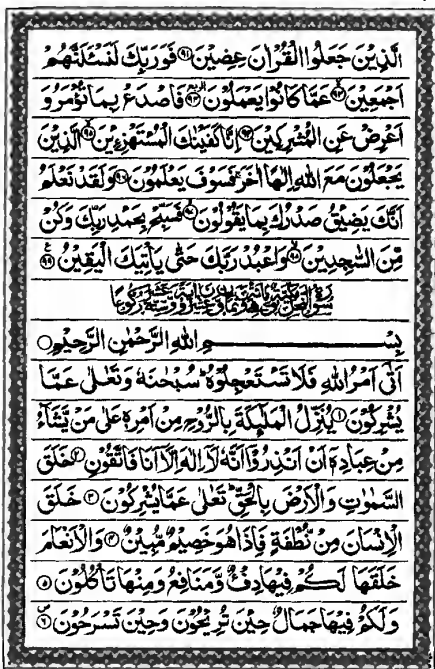 الَّذِيْنَ جَعَلُوا الْقُرْاٰنَ عِضِيْنَ ۝٩١ فَوَرَبِّكَ لَنَسْـَٔلَنَّهُمْ
اَجْمَعِيْنَ ۝٩٢ عَمَّا كَانُوْا يَعْمَلُوْنَ ۝٩٣ فَاصْدَعْ بِمَا تُؤْمَرُ وَ
اَعْرِضْ عَنِ الْمُشْرِكِيْنَ ۝٩٤ اِنَّا كَفَيْنٰكَ الْمُسْتَهْزِءِيْنَ ۝٩٥ الَّذِيْنَ
يَجْعَلُوْنَ مَعَ اللّٰهِ اِلٰهًا اٰخَرَ ۚ فَسَوْفَ يَعْلَمُوْنَ ۝٩٦ وَلَقَدْ نَعْلَمُ
اَنَّكَ يَضِيْقُ صَدْرُكَ بِمَا يَقُوْلُوْنَ ۝٩٧ فَسَبِّحْ بِحَمْدِ رَبِّكَ وَكُنْ
مِّنَ السّٰجِدِيْنَ ۝٩٨ وَاعْبُدْ رَبَّكَ حَتّٰى يَاْتِيَكَ الْيَقِيْنُ ۝٩٩
بِسْمِ اللّٰهِ الرَّحْمٰنِ الرَّحِيْمِ
اَتٰٓى اَمْرُ اللّٰهِ فَلَا تَسْتَعْجِلُوْهُ ؕ سُبْحٰنَهٗ وَتَعٰلٰى عَمَّا
يُشْرِكُوْنَ ۝١ يُنَزِّلُ الْمَلٰٓئِكَةَ بِالرُّوْحِ مِنْ اَمْرِهٖ عَلٰى مَنْ يَّشَآءُ
مِنْ عِبَادِهٖۤ اَنْ اَنْذِرُوْۤا اَنَّهٗ لَاۤ اِلٰهَ اِلَّاۤ اَنَا فَاتَّقُوْنِ ۝٢ خَلَقَ
السَّمٰوٰتِ وَالْاَرْضَ بِالْحَقِّ ؕ تَعٰلٰى عَمَّا يُشْرِكُوْنَ ۝٣ خَلَقَ
الْاِنْسَانَ مِنْ نُّطْفَةٍ فَاِذَا هُوَ خَصِيْمٌ مُّبِيْنٌ ۝٤ وَالْاَنْعَامَ
خَلَقَهَا ۚ لَكُمْ فِيْهَا دِفْءٌ وَّمَنَافِعُ وَمِنْهَا تَاْكُلُوْنَ ۝٥
وَلَكُمْ فِيْهَا جَمَالٌ حِيْنَ تُرِيْحُوْنَ وَحِيْنَ تَسْرَحُوْنَ ۝٦